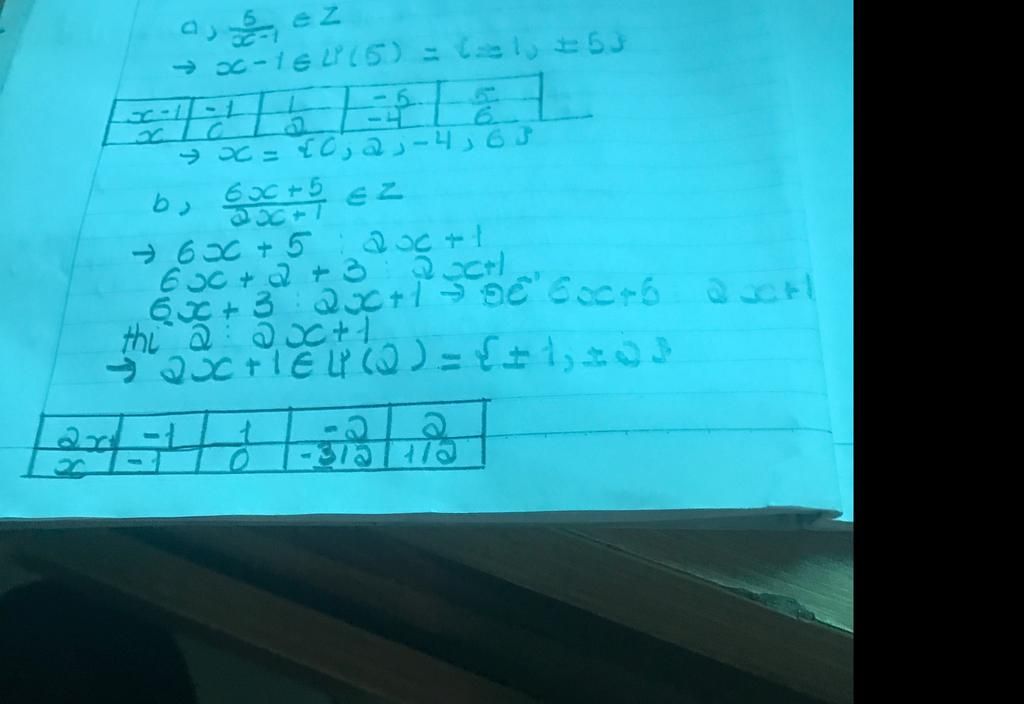 a, 5/x-1 ∈ Z
→ x-1 ∈ Ư(5) = {±1, ±5}
x-1 -1 1 -5 5
x 0 2 -4 6
→ x = {0, 2, -4, 6}
b, 6x+5/2x+1 ∈ Z
→ 6x + 5 ⋮ 2x + 1
6x + 2 + 3 ⋮ 2x+1
6x + 3 ⋮ 2x+1 → Để 6x+5 ⋮ 2x+1
thì 2 ⋮ 2x+1
→ 2x+1 ∈ Ư(2) = {±1, ±2}
2x+1 -1 1 -2 2
x -1 0 -3/2 1/2